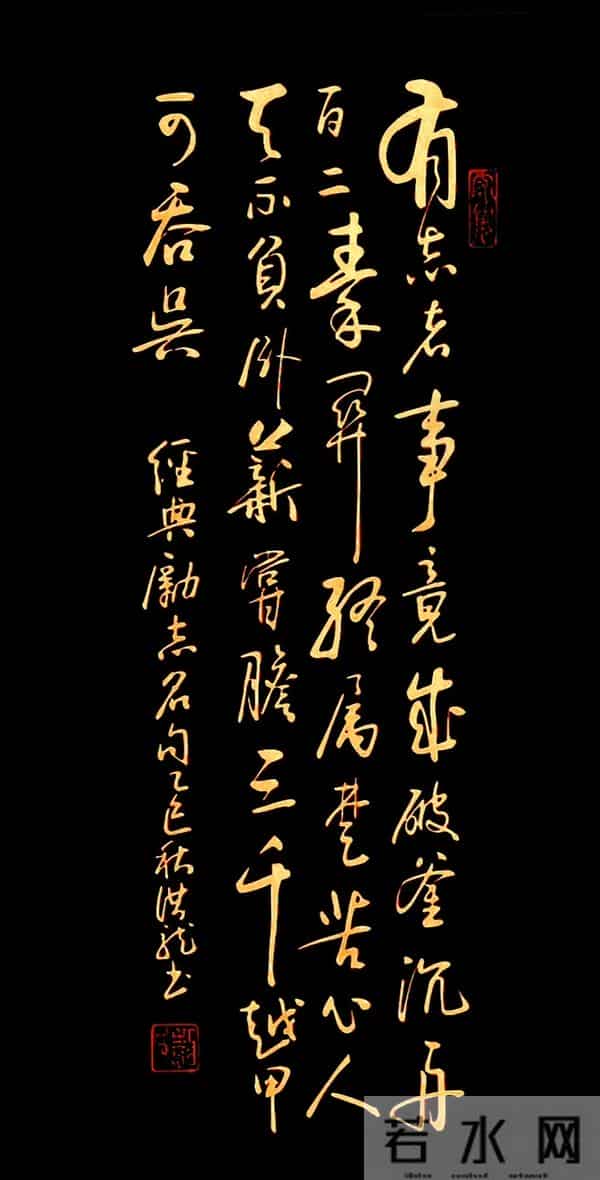 有志者事竟成破釜沉舟
百二秦關終属楚苦心人
天不負卧薪嘗膽三千越甲
可吞吳 經典勵志名句乙巳秋洪龙书
若水网